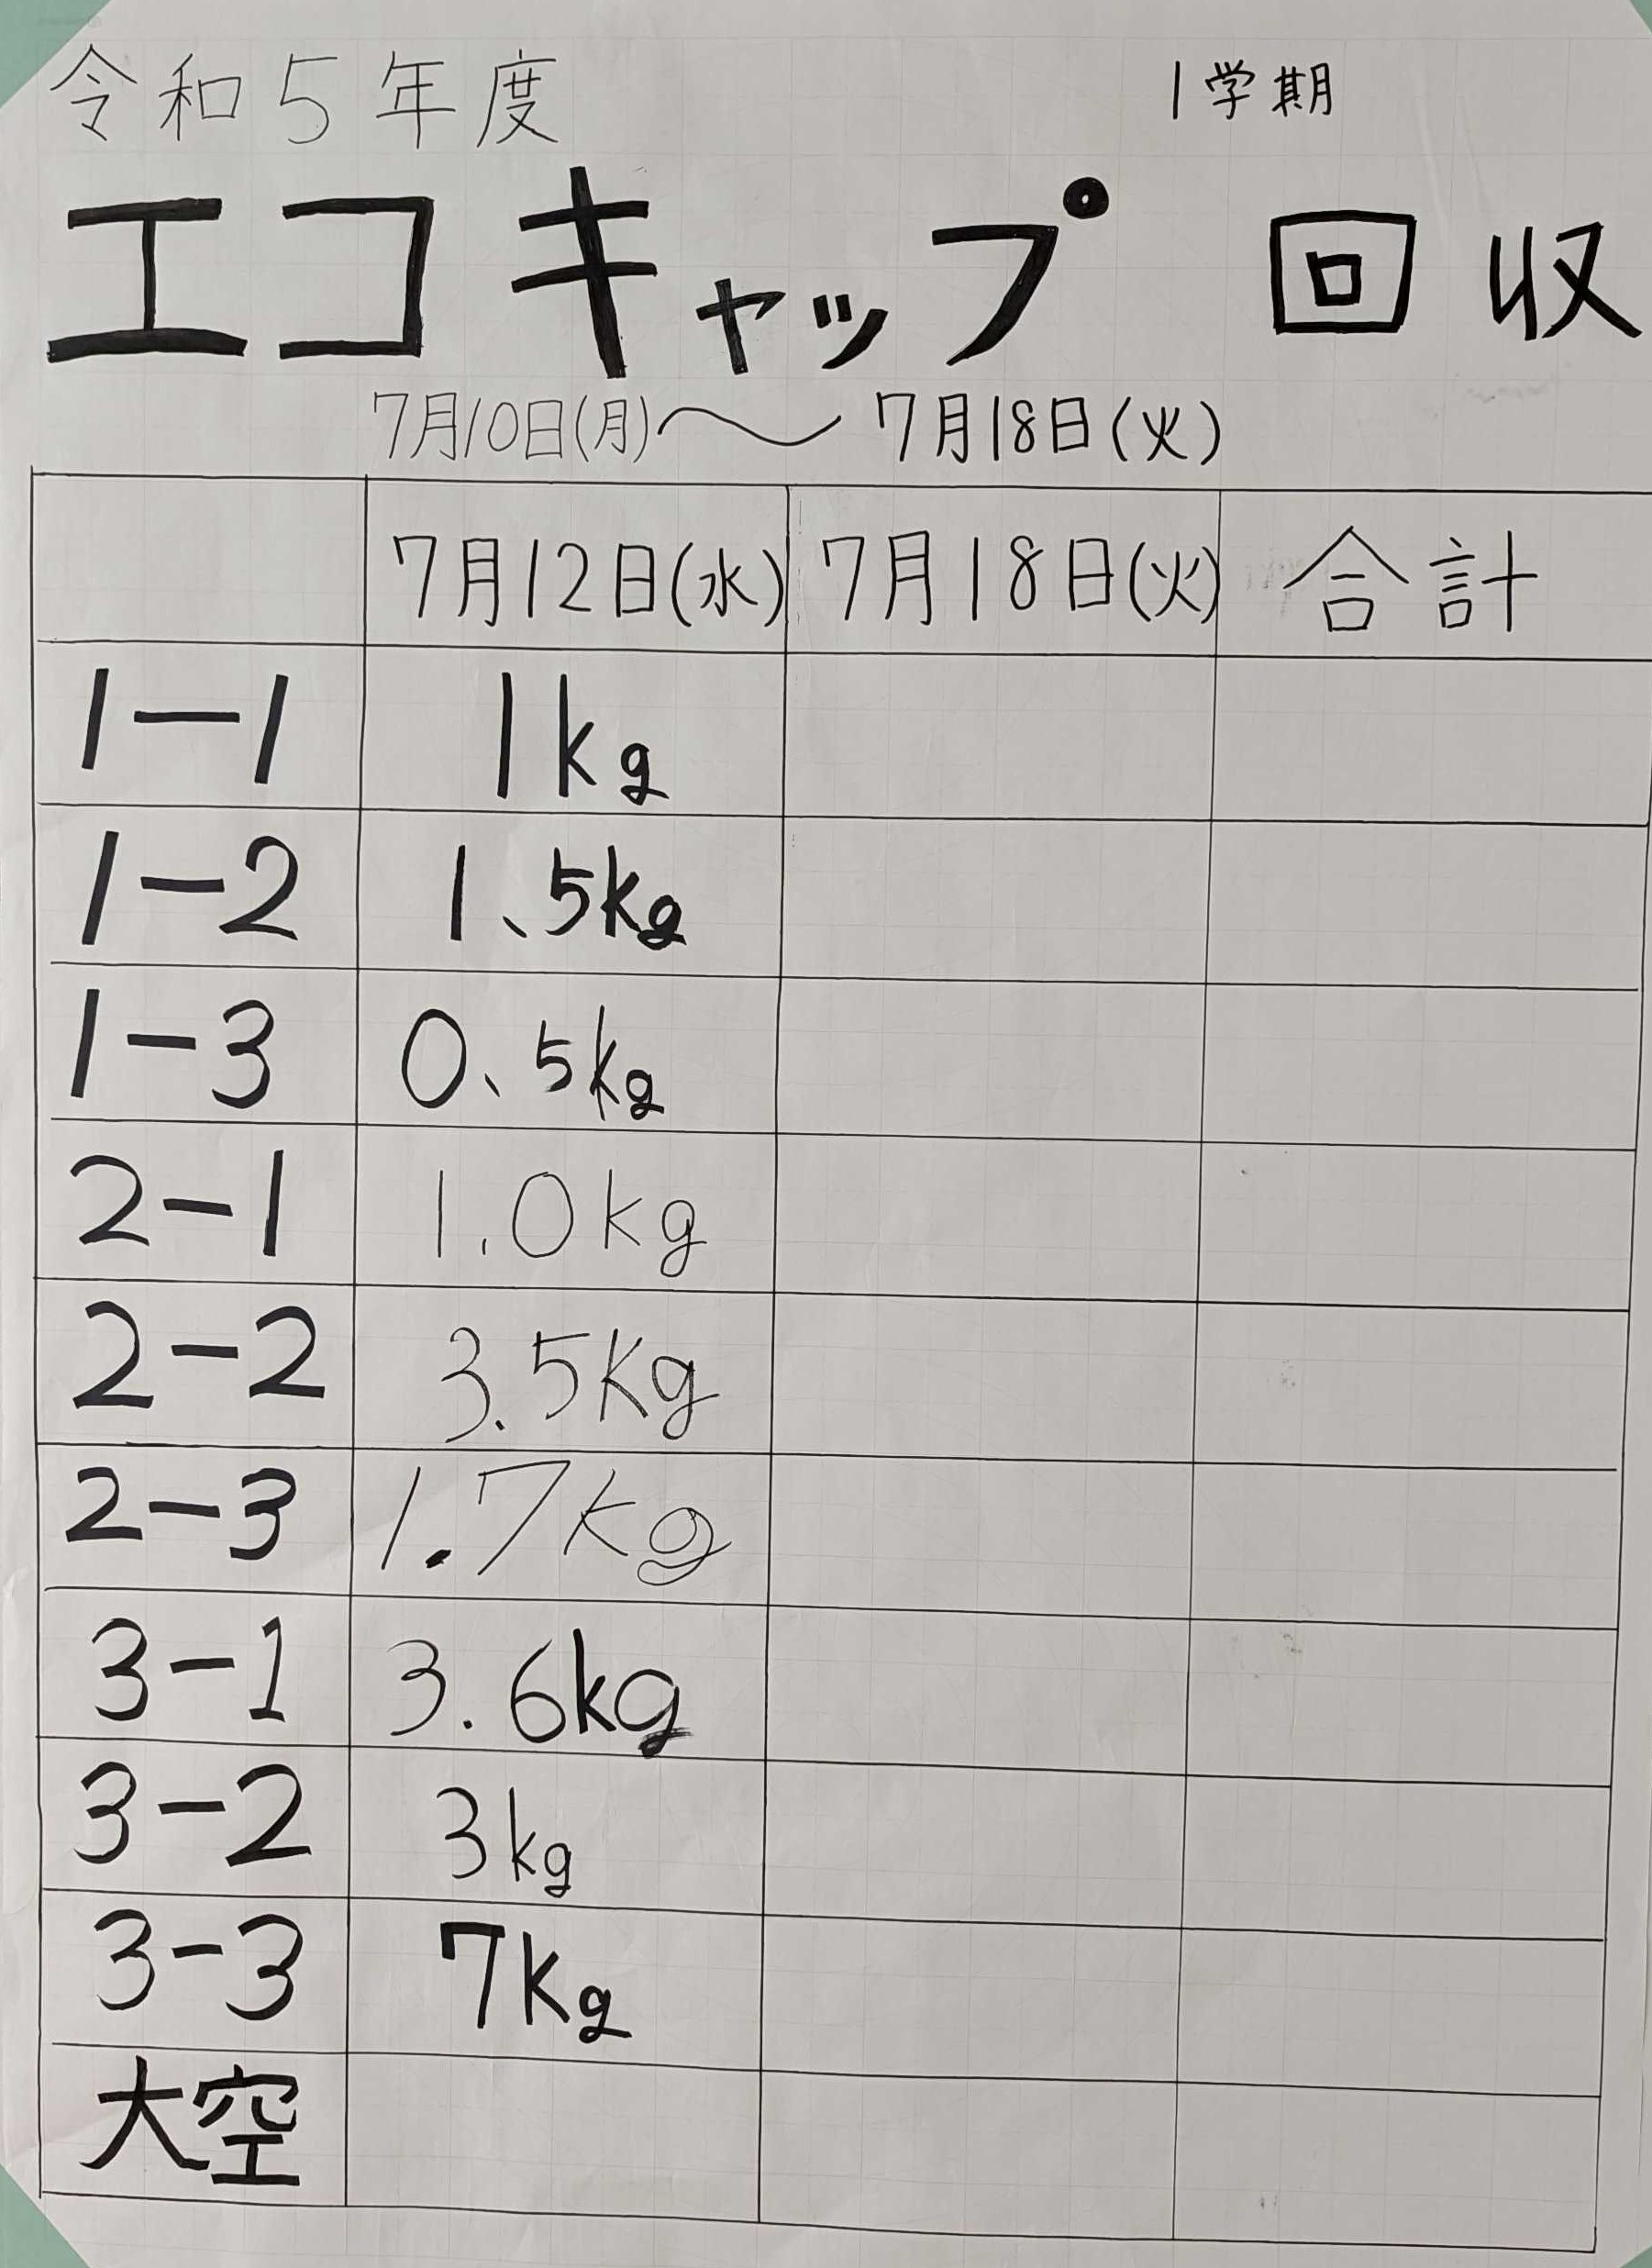 令和5年度 1学期
エコキャップ回収
7月10日(月)〜7月18日(火)
7月12日(水) 7月18日(火) 合計
1-1 1kg
1-2 1、5kg
1-3 0、5kg
2-1 1.0kg
2-2 3.5Kg
2-3 1.7Kg
3-1 3.6kg
3-2 3kg
3-3 7Kg
大空